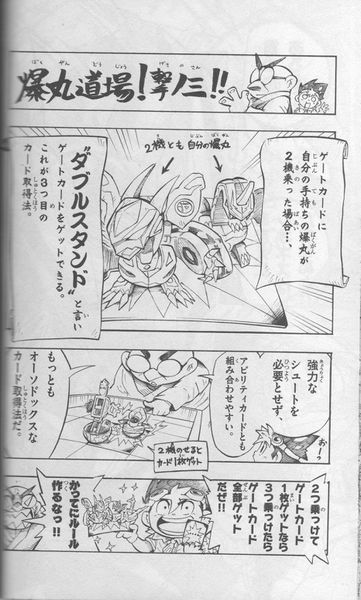 爆丸道場！撃ノ三!!
ゲートカードに
自分の手持ちの爆丸が
2機乗った場合…、
2機とも自分の爆丸
"ダブルスタンド"と言い
ゲートカードをゲットできる。
これが3つ目の
カード取得法。
強力な
シュートを
必要とせず、
おーっ
アビリティカードとも
組み合わせやすい。
2機のせると
カード1枚ゲット
もっとも
オーソドックスな
カード取得法だ。
2つ乗っけて
1枚ゲットなら
ゲートカード
3つ乗っけたら
ゲートカード
全部ゲット
だぜ!!
かってにルール
作るなっ!!